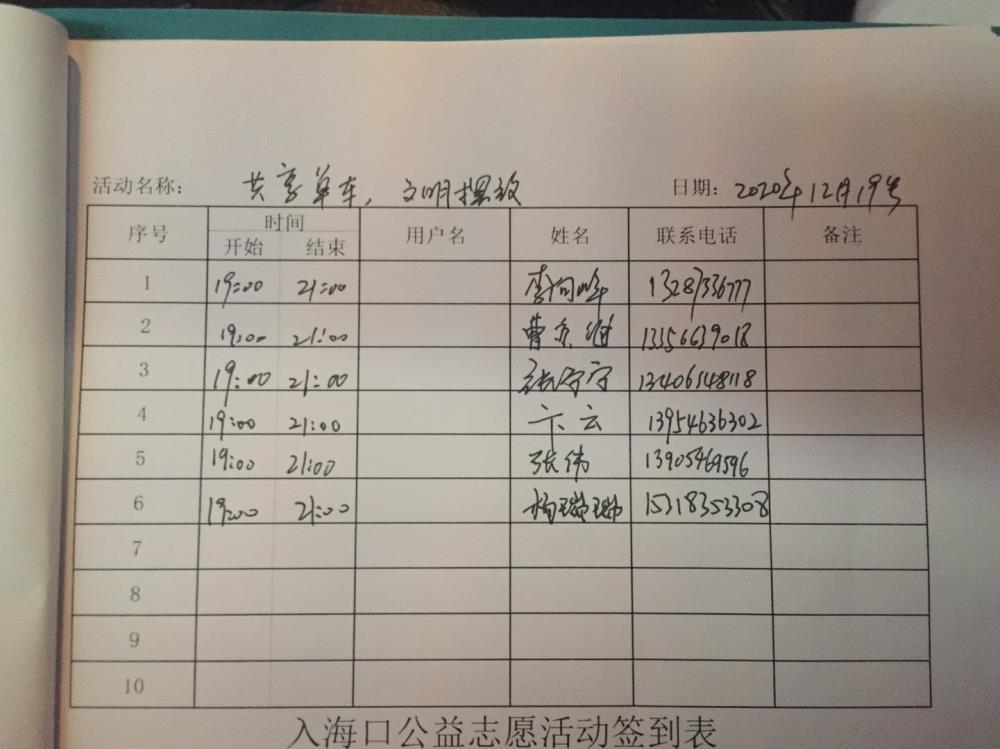 活动名称： 共享单车，文明摆放 日期：2020年12月19号
序号 时间 用户名 姓名 联系电话 备注
开始 结束
1 19:00 21:00 李向峰 13287336777
2 19:00 21:00 曹 13356639018
3 19:00 21:00 张守宁 13406148118
4 19:00 21:00 卞云 13954636302
5 19:00 21:00 张伟 13905469596
6 19:00 21:00 杨璐璐 15318353308
7
8
9
10
入海口公益志愿活动签到表